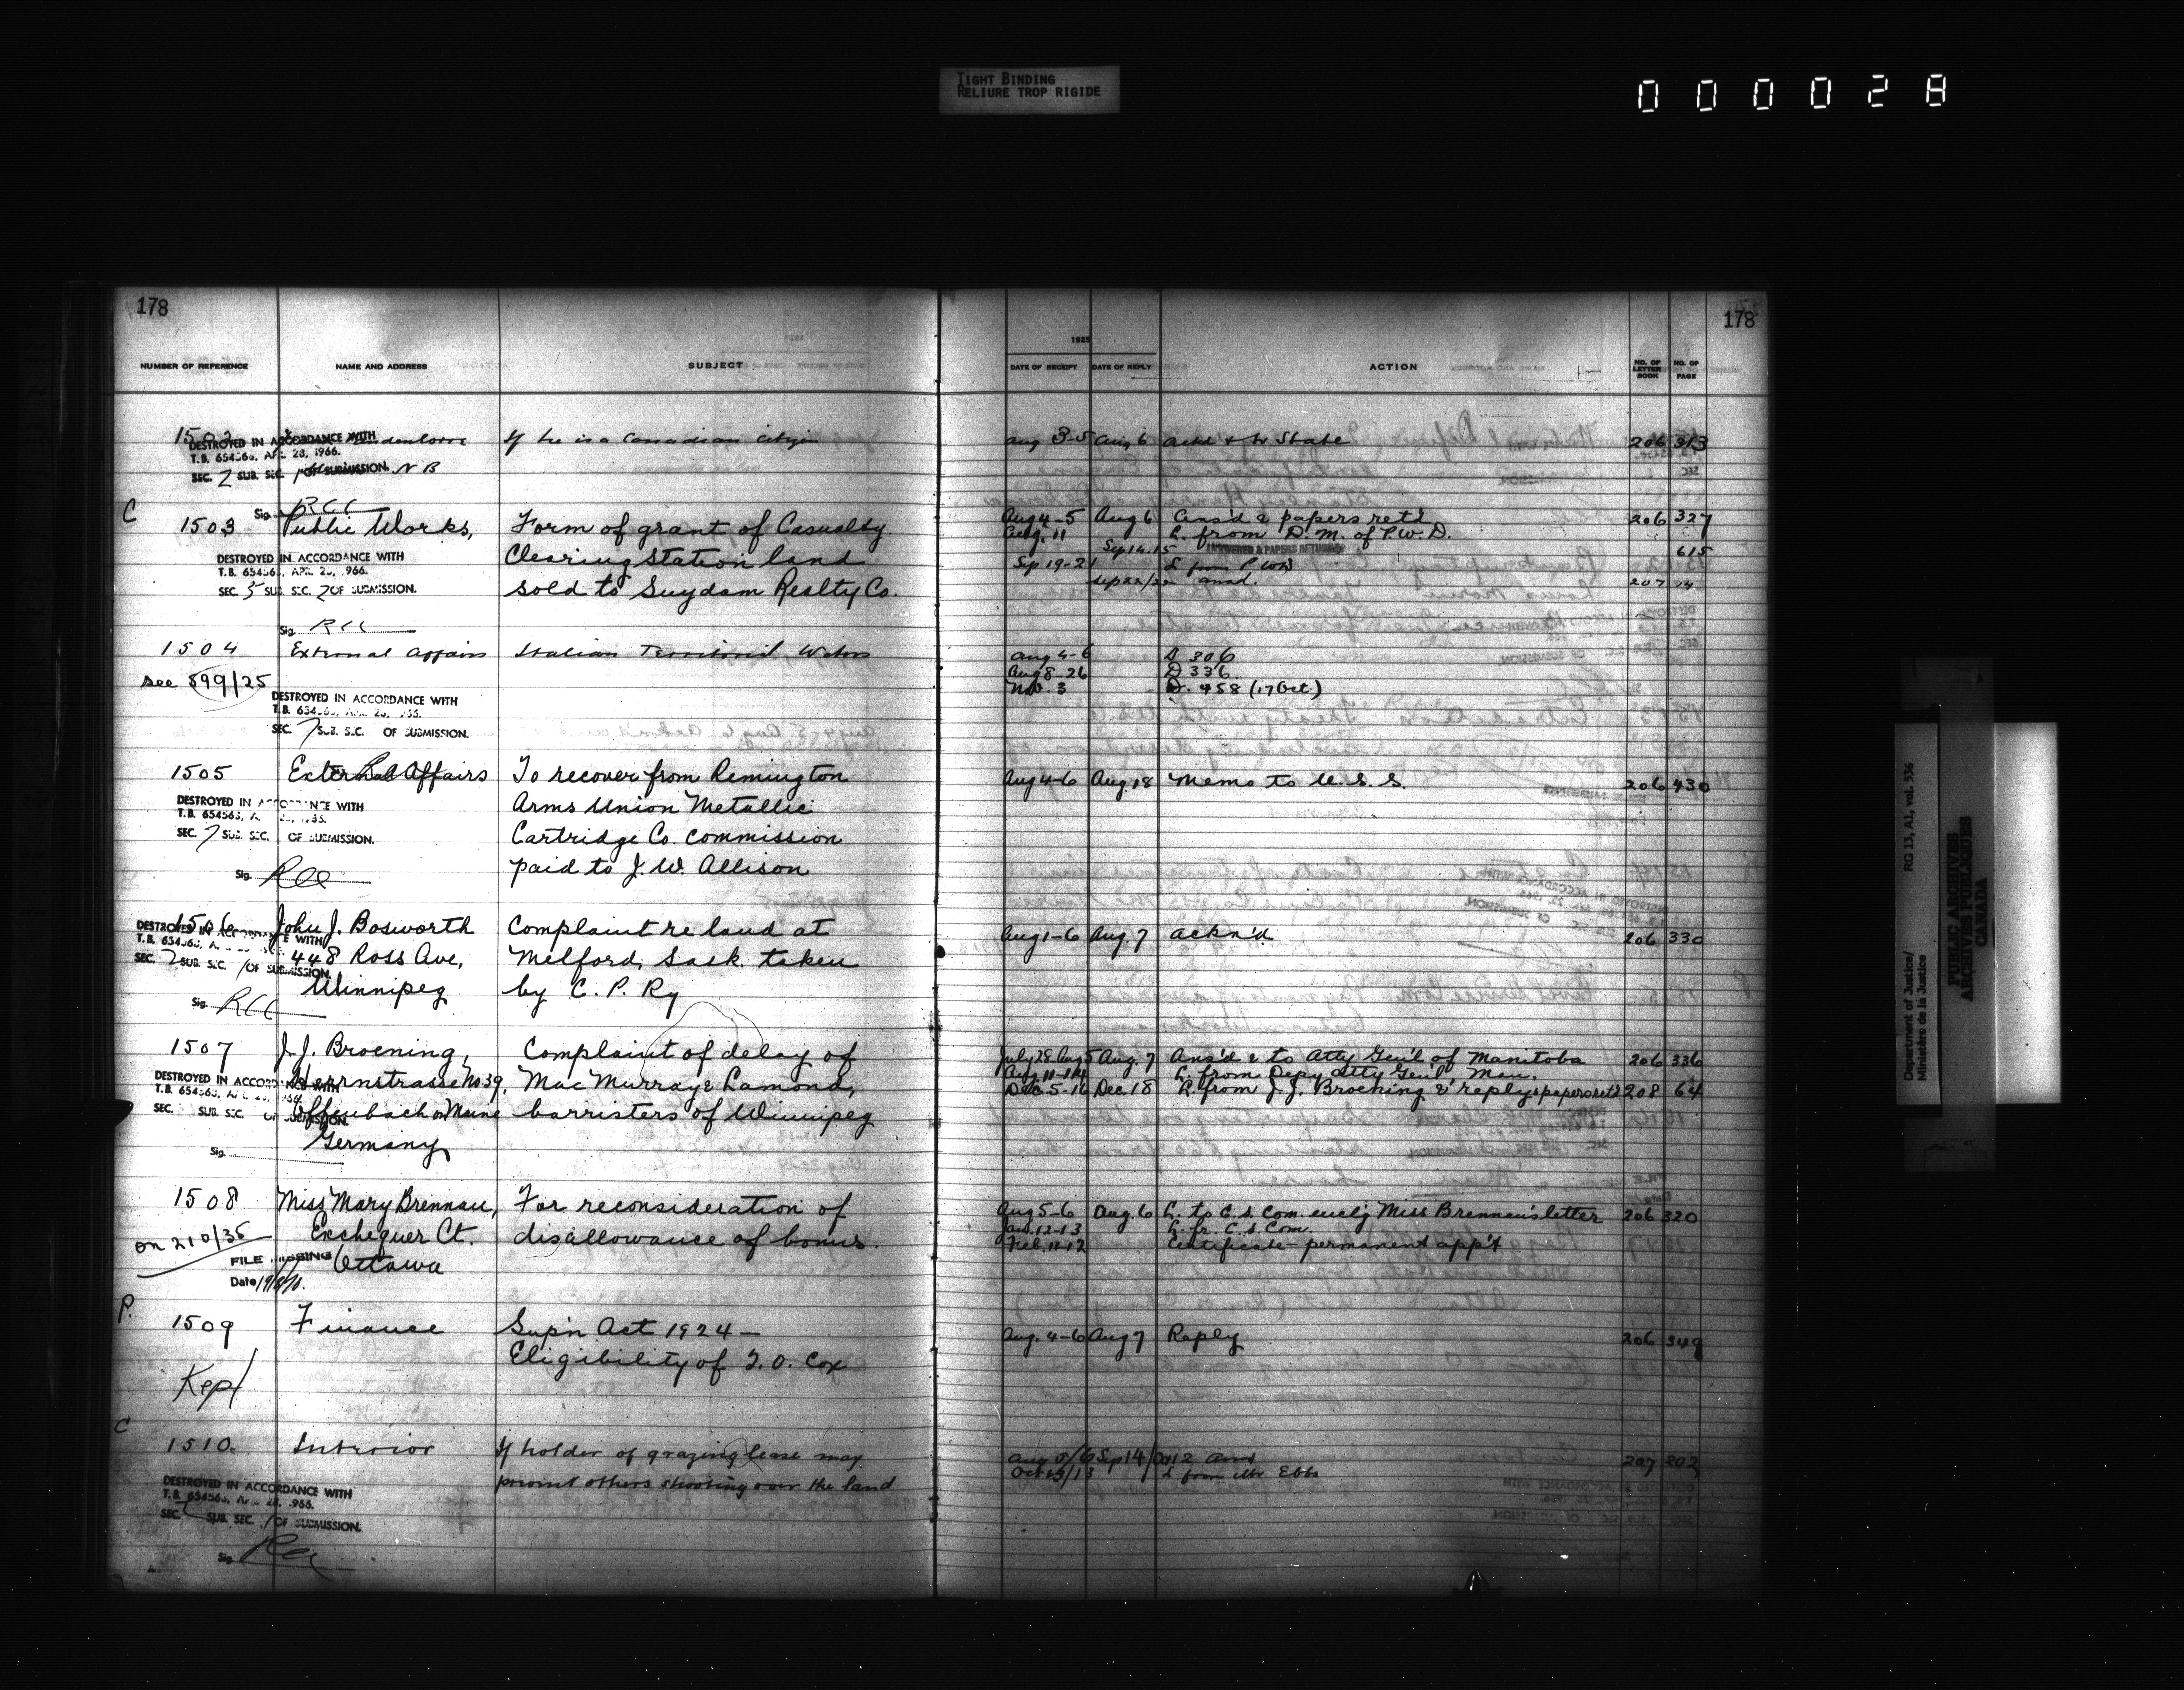 TIGHT BINDING
RELIURE TROP RIGIDE
000028
178
NUMBER OF REFERENCE NAME AND ADDRESS SUBJECT
1502
DESTROYED IN ACCORDANCE WITH
T.B. 654563, APR. 28, 1966.
SEC. 2 SUB. SEC. 1 OF SUBMISSION. N B
If he is a Canadian citizen
Sig. RCC
C
1503 Public Works, Form of grant of Casualty
Clearing Station land
sold to Suydam Realty Co.
DESTROYED IN ACCORDANCE WITH
T.B. 654563, APR. 28, 1966.
SEC. 5 SUB. SEC. 2 OF SUBMISSION.
Sig. RCC
1504 External Affairs Italian Territorial Waters
see 599/25
DESTROYED IN ACCORDANCE WITH
T.B. 654563, APR. 28, 1966.
SEC. 7 SUB. SEC. OF SUBMISSION.
1505 External Affairs To recover from Remington
Arms Union Metallic
Cartridge Co. commission
paid to J. W. Allison
DESTROYED IN ACCORDANCE WITH
T.B. 654563, APR. 28, 1966.
SEC. 7 SUB. SEC. OF SUBMISSION.
Sig. RCC
1506 John J. Bosworth Complaint re land at
448 Ross Ave, Melford, Sask. taken
Winnipeg by C. P. Ry
DESTROYED IN ACCORDANCE WITH
T.B. 654563, APR. 28, 1966.
SEC. 2 SUB. SEC. 1 OF SUBMISSION.
Sig. RCC
1507 J. J. Broening, Complaint of delay of
Herrnstrasse No 39, MacMurray & Lamond,
Offenbach on Maine barristers of Winnipeg
Germany
DESTROYED IN ACCORDANCE WITH
T.B. 654563, APR. 28, 1966.
SEC. SUB. SEC. OF SUBMISSION.
Sig.
1508 Miss Mary Brennan, For reconsideration of
Exchequer Ct. disallowance of bonus.
Ottawa
on 210/35
FILE MISSING
Date
P.
1509 Finance Sup'n Act 1924 —
Eligibility of T. O. Cox
Kept
C
1510. Interior If holder of grazing lease may
prevent others shooting over the land
DESTROYED IN ACCORDANCE WITH
T.B. 654563, APR. 28, 1966.
SEC. SUB. SEC. 1 OF SUBMISSION.
Sig.
178
1925
DATE OF RECEIPT DATE OF REPLY ACTION NO. OF LETTER BOOK NO. OF PAGE
Aug 3-5 Aug 6 Ackd & to State 206 313
Aug 4-5 Aug 6 Ans'd & papers ret'd 206 327
Aug. 11 L. from D. M. of P.W.D.
Sep 14-15 ANSWERED & PAPERS RETURNED 615
Sep 19-21 L from P W D
Sep 22/22 ansd. 207 14
Aug 4-6 D 306
Aug 8-26 D 336
Nov. 3 D. 458 (17 Oct.)
Aug 4-6 Aug. 18 Memo to U. S. S. 206 430
Aug 1-6 Aug. 7 Ackn'd 206 330
July 28-Aug 5 Aug. 7 Ans'd & to Atty Gen'l of Manitoba 206 336
Aug. 11-14 L. from Depy Atty Gen'l Man.
Dec. 5-16 Dec. 18 L. from J. J. Broening & reply & papers ret'd 208 64
Aug 5-6 Aug. 6 L. to C. S. Com. encl'g Miss Brennan's letter 206 320
Jan. 12-13 L. fr. C. S. Com.
Feb. 11-12 Certificate - permanent app't
Aug. 4-6 Aug 7 Reply 206 349
Aug 5/6 Sep 14/Oct 12 Ansd 207 202
L from Mr Ebbs
Department of Justice/
Ministère de la Justice
RG 13, A1, vol. 536
PUBLIC ARCHIVES
ARCHIVES PUBLIQUES
CANADA